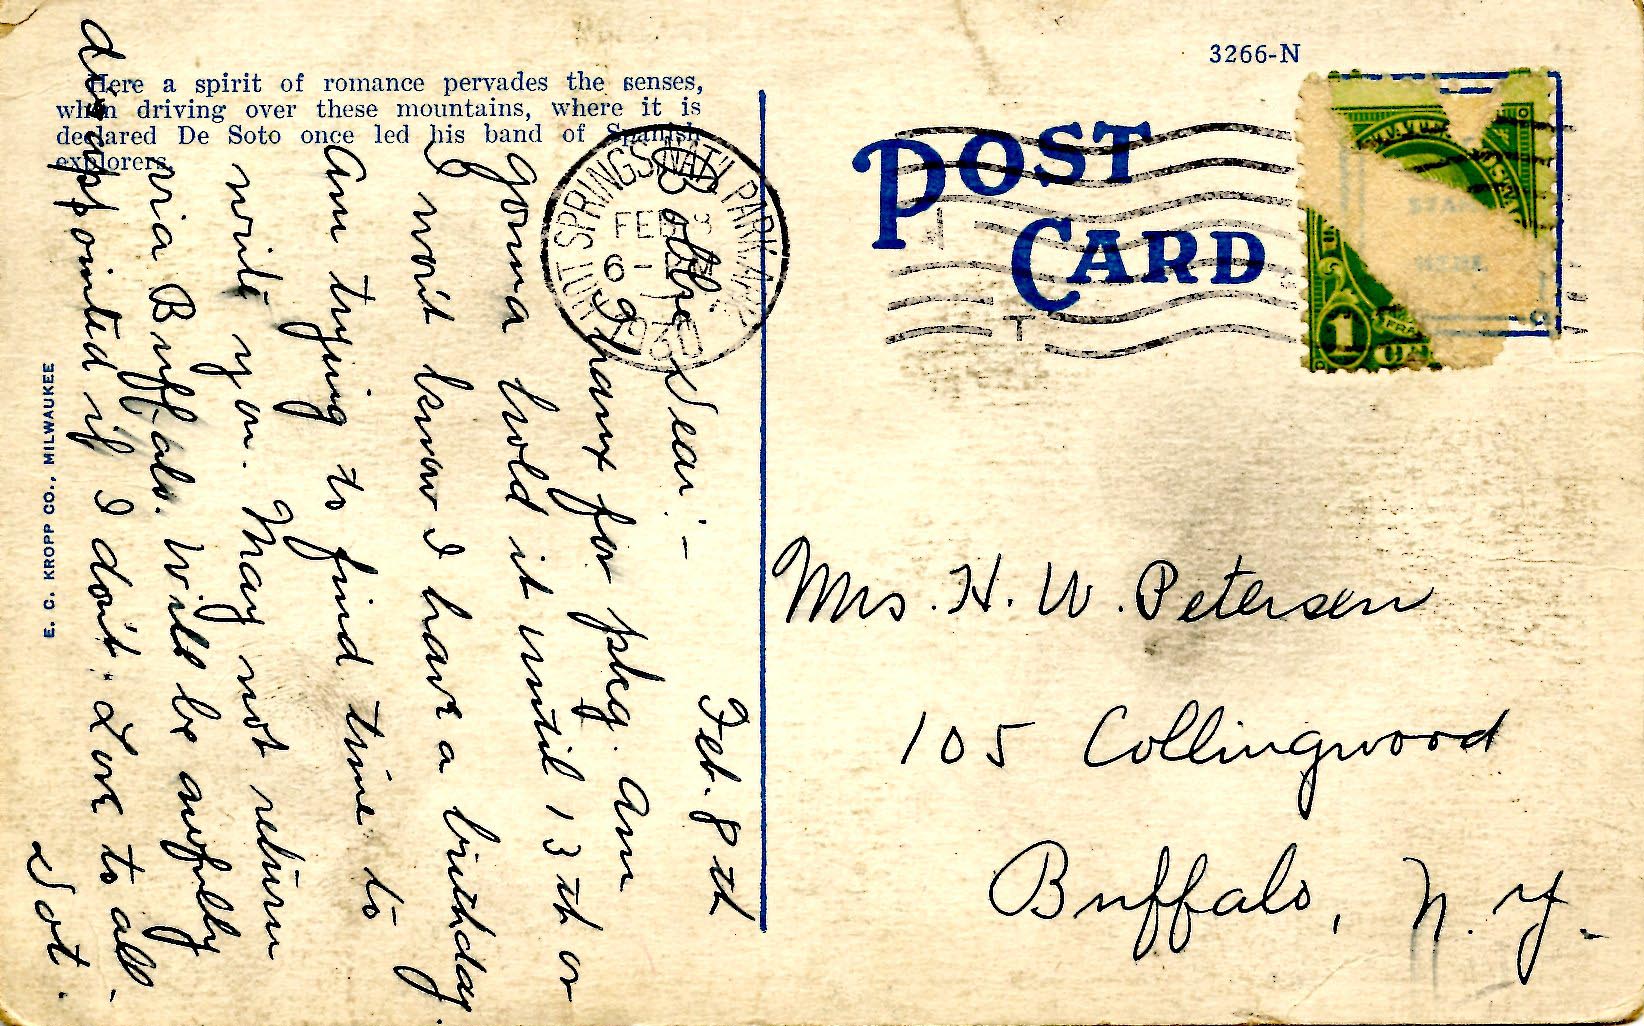 3266-N
Here a spirit of romance pervades the senses,
when driving over these mountains, where it is
declared De Soto once led his band of Spanish
explorers.
POST
CARD
HOT SPRINGS NAT'L PARK ARK.
FEB 8
6-
1930
1
E. C. KROPP CO., MILWAUKEE
Feb. 8th
Dear:-
Thanx for pkg. Am
gonna hold it until 13th or
I won't know I have a birthday.
Am trying to find time to
write you. May not return
via Buffalo. Will be awfully
disappointed if I don't. Love to all.
Dot.
Mrs. H. W. Petersen
105 Collingwood
Buffalo, N. Y.